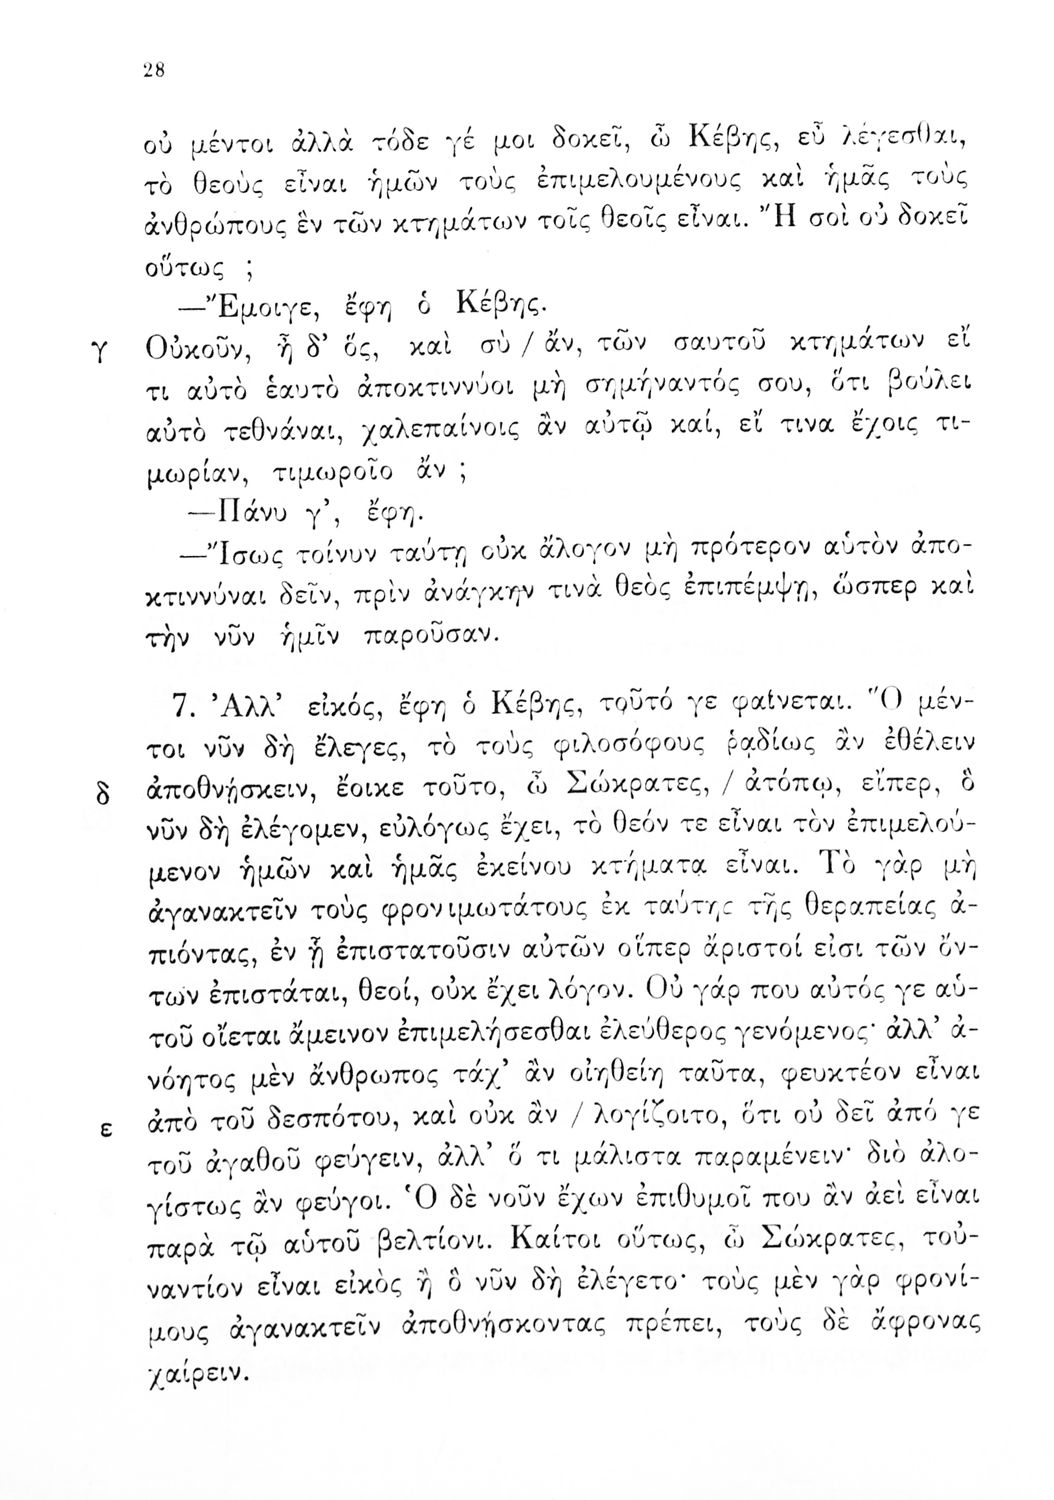 28
οὐ μέντοι ἀλλὰ τόδε γέ μοι δοκεῖ, ὦ Κέβης, εὖ λέγεσθαι,
τὸ θεοὺς εἶναι ἡμῶν τοὺς ἐπιμελουμένους καὶ ἡμᾶς τοὺς
ἀνθρώπους ἓν τῶν κτημάτων τοῖς θεοῖς εἶναι. Ἢ σοὶ οὐ δοκεῖ
οὕτως ;
—Ἔμοιγε, ἔφη ὁ Κέβης.
γ Οὐκοῦν, ἦ δ’ ὅς, καὶ σὺ / ἄν, τῶν σαυτοῦ κτημάτων εἴ
τι αὐτὸ ἑαυτὸ ἀποκτιννύοι μὴ σημήναντός σου, ὅτι βούλει
αὐτὸ τεθνάναι, χαλεπαίνοις ἂν αὐτῷ καί, εἴ τινα ἔχοις τι-
μωρίαν, τιμωροῖο ἄν ;
—Πάνυ γ’, ἔφη.
—Ἴσως τοίνυν ταύτῃ οὐκ ἄλογον μὴ πρότερον αὑτὸν ἀπο-
κτιννύναι δεῖν, πρὶν ἀνάγκην τινὰ θεὸς ἐπιπέμψῃ, ὥσπερ καὶ
τὴν νῦν ἡμῖν παροῦσαν.
7. Ἀλλ’ εἰκός, ἔφη ὁ Κέβης, τοῦτό γε φαίνεται. Ὃ μέν-
τοι νῦν δὴ ἔλεγες, τὸ τοὺς φιλοσόφους ῥᾳδίως ἂν ἐθέλειν
δ ἀποθνῄσκειν, ἔοικε τοῦτο, ὦ Σώκρατες, / ἀτόπῳ, εἴπερ, ὃ
νῦν δὴ ἐλέγομεν, εὐλόγως ἔχει, τὸ θεόν τε εἶναι τὸν ἐπιμελού-
μενον ἡμῶν καὶ ἡμᾶς ἐκείνου κτήματα εἶναι. Τὸ γὰρ μὴ
ἀγανακτεῖν τοὺς φρονιμωτάτους ἐκ ταύτης τῆς θεραπείας ἀ-
πιόντας, ἐν ᾗ ἐπιστατοῦσιν αὐτῶν οἵπερ ἄριστοί εἰσι τῶν ὄν-
των ἐπιστάται, θεοί, οὐκ ἔχει λόγον. Οὐ γάρ που αὐτός γε αὑ-
τοῦ οἴεται ἄμεινον ἐπιμελήσεσθαι ἐλεύθερος γενόμενος· ἀλλ’ ἀ-
νόητος μὲν ἄνθρωπος τάχ’ ἂν οἰηθείη ταῦτα, φευκτέον εἶναι
ε ἀπὸ τοῦ δεσπότου, καὶ οὐκ ἂν / λογίζοιτο, ὅτι οὐ δεῖ ἀπό γε
τοῦ ἀγαθοῦ φεύγειν, ἀλλ’ ὅ τι μάλιστα παραμένειν· διὸ ἀλο-
γίστως ἂν φεύγοι. Ὁ δὲ νοῦν ἔχων ἐπιθυμοῖ που ἂν ἀεὶ εἶναι
παρὰ τῷ αὑτοῦ βελτίονι. Καίτοι οὕτως, ὦ Σώκρατες, τοὐ-
ναντίον εἶναι εἰκὸς ἢ ὃ νῦν δὴ ἐλέγετο· τοὺς μὲν γὰρ φρονί-
μους ἀγανακτεῖν ἀποθνῄσκοντας πρέπει, τοὺς δὲ ἄφρονας
χαίρειν.